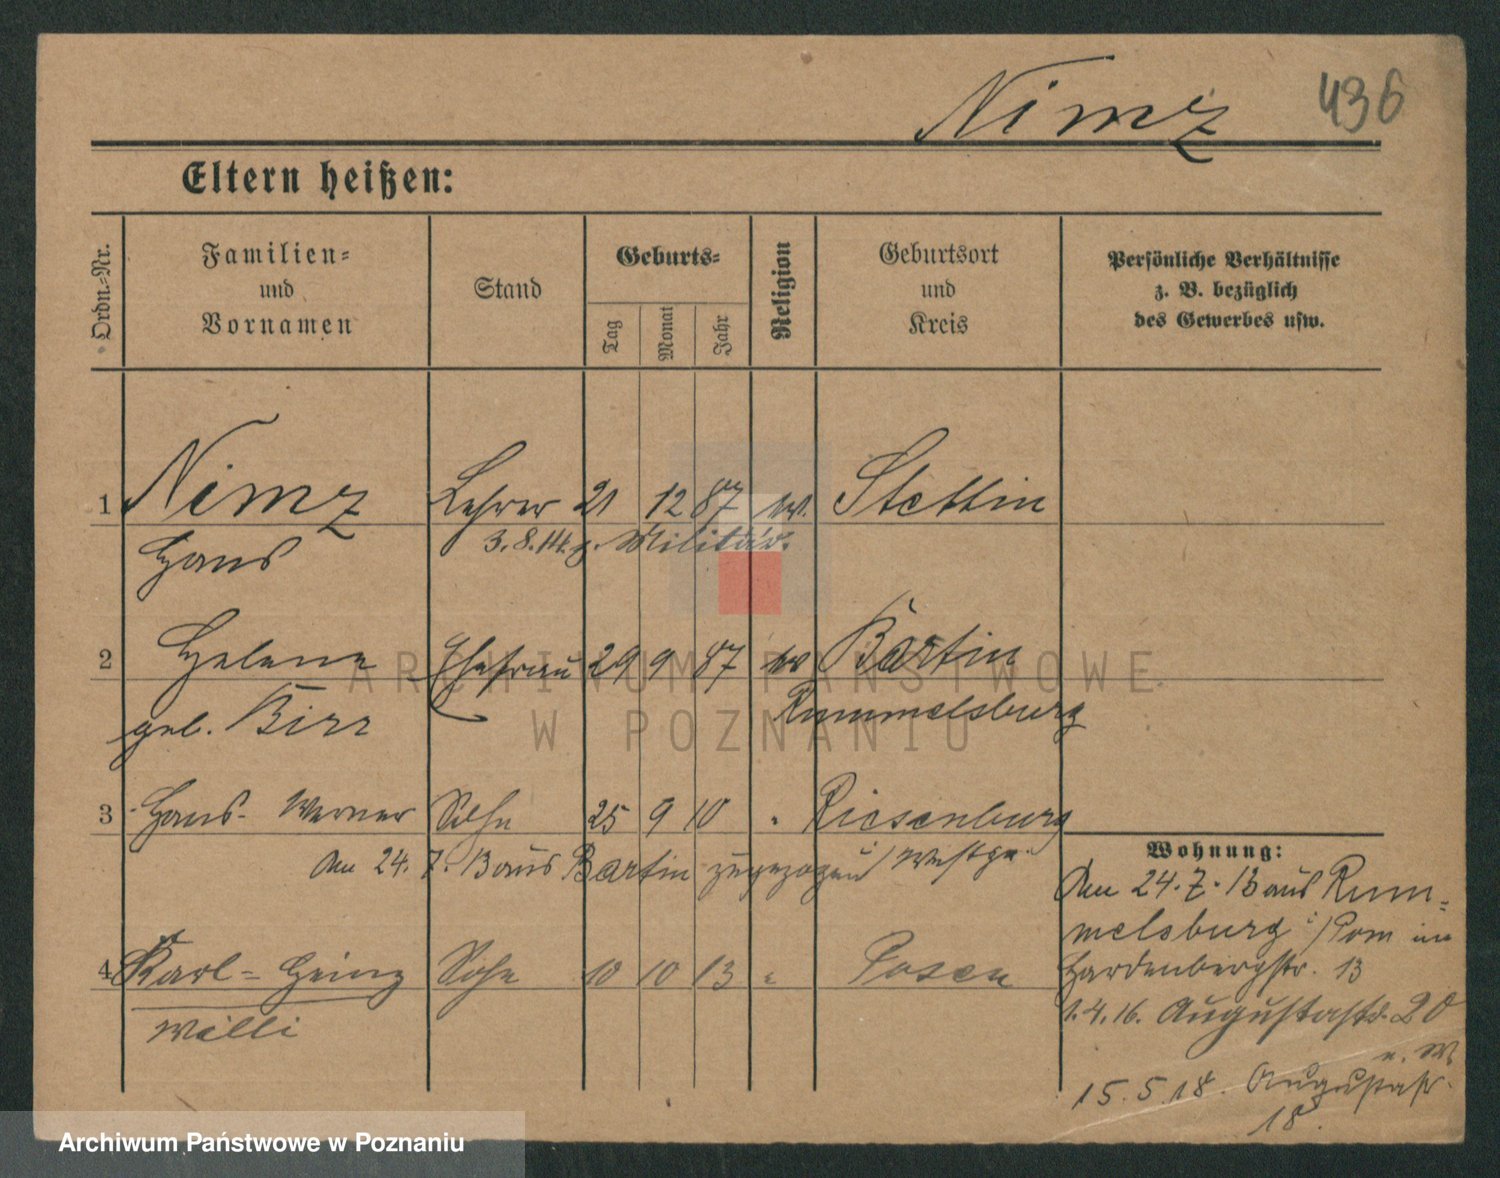 Nimz 436
Eltern heißen:
Ordn.-Nr.
Familien- und Vornamen
Stand
Geburts-
Tag
Monat
Jahr
Religion
Geburtsort und Kreis
Persönliche Verhältnisse
z. B. bezüglich
des Gewerbes usw.
1 Nimz Lehrer 21 12 87 ev. Stettin
Hans 3.8.14. z. Militär.
2 Helene Ehefrau 29 9 87 ev Bartin
geb. Birr Rummelsburg
3 Hans- Werner Sohn 25 9 10 " Riesenburg
Den 24. 7. 13 aus Bartin zugezogen / Westpr.
4 Karl-Heinz Sohn 10 10 13 " Posen
Willi
Wohnung:
Den 24.7.13 aus Rum-
melsburg i/Pom in
Hardenbergstr. 13
1.4.16. Augustastr. 20
15.5.18. Augustastr.
18.
ARCHIWUM PAŃSTWOWE
W POZNANIU
Archiwum Państwowe w Poznaniu